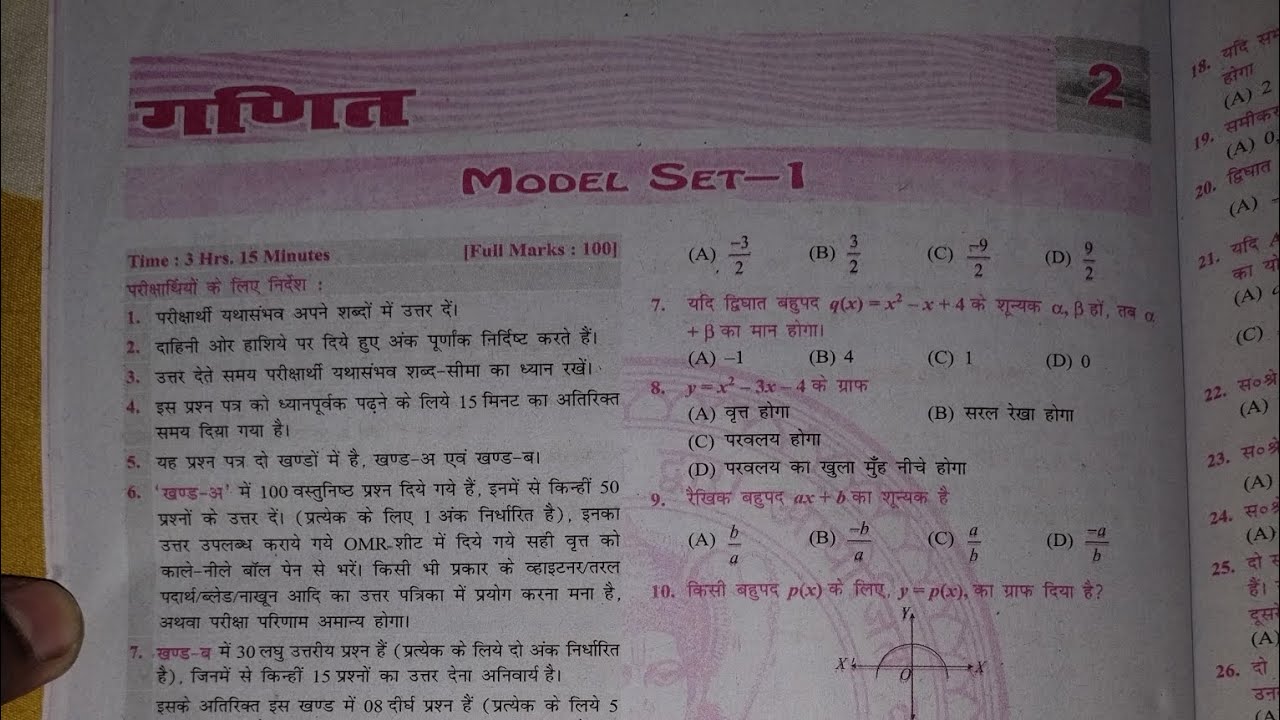 गणित
2
MODEL SET–1
Time : 3 Hrs. 15 Minutes [Full Marks : 100]
परीक्षार्थियों के लिए निर्देश :
1. परीक्षार्थी यथासंभव अपने शब्दों में उत्तर दें।
2. दाहिनी ओर हाशिये पर दिये हुए अंक पूर्णांक निर्दिष्ट करते हैं।
3. उत्तर देते समय परीक्षार्थी यथासंभव शब्द-सीमा का ध्यान रखें।
4. इस प्रश्न पत्र को ध्यानपूर्वक पढ़ने के लिये 15 मिनट का अतिरिक्त
समय दिया गया है।
5. यह प्रश्न पत्र दो खण्डों में है, खण्ड-अ एवं खण्ड-ब।
6. 'खण्ड-अ' में 100 वस्तुनिष्ठ प्रश्न दिये गये हैं, इनमें से किन्हीं 50
प्रश्नों के उत्तर दें। (प्रत्येक के लिए 1 अंक निर्धारित है), इनका
उत्तर उपलब्ध कराये गये OMR-शीट में दिये गये सही वृत्त को
काले-नीले बॉल पेन से भरें। किसी भी प्रकार के व्हाइटनर/तरल
पदार्थ/ब्लेड/नाखून आदि का उत्तर पत्रिका में प्रयोग करना मना है,
अथवा परीक्षा परिणाम अमान्य होगा।
7. खण्ड-ब में 30 लघु उत्तरीय प्रश्न हैं (प्रत्येक के लिये दो अंक निर्धारित
है), जिनमें से किन्हीं 15 प्रश्नों का उत्तर देना अनिवार्य है।
इसके अतिरिक्त इस खण्ड में 08 दीर्घ प्रश्न हैं (प्रत्येक के लिये 5
(A) −3/2 (B) 3/2 (C) −9/2 (D) 9/2
7. यदि द्विघात बहुपद q(x) = x² − x + 4 के शून्यक α, β हों, तब α
+ β का मान होगा।
(A) –1 (B) 4 (C) 1 (D) 0
8. y = x² − 3x − 4 के ग्राफ
(A) वृत्त होगा (B) सरल रेखा होगा
(C) परवलय होगा
(D) परवलय का खुला मुँह नीचे होगा
9. रैखिक बहुपद ax + b का शून्यक है
(A) b/a (B) −b/a (C) a/b (D) −a/b
10. किसी बहुपद p(x) के लिए, y = p(x), का ग्राफ दिया है?
Y
X′ O X
18. यदि सम
होगा
(A) 2
19. समीकर
(A) 0,
20. द्विघात
(A) –
21. यदि
का यो
(A)
(C)
22. स०श्रे
(A)
23. स०श्रे
(A)
24. स०श्रे
(A)
25. दो स
हैं।
दूसर
(A)
26. दो
उन